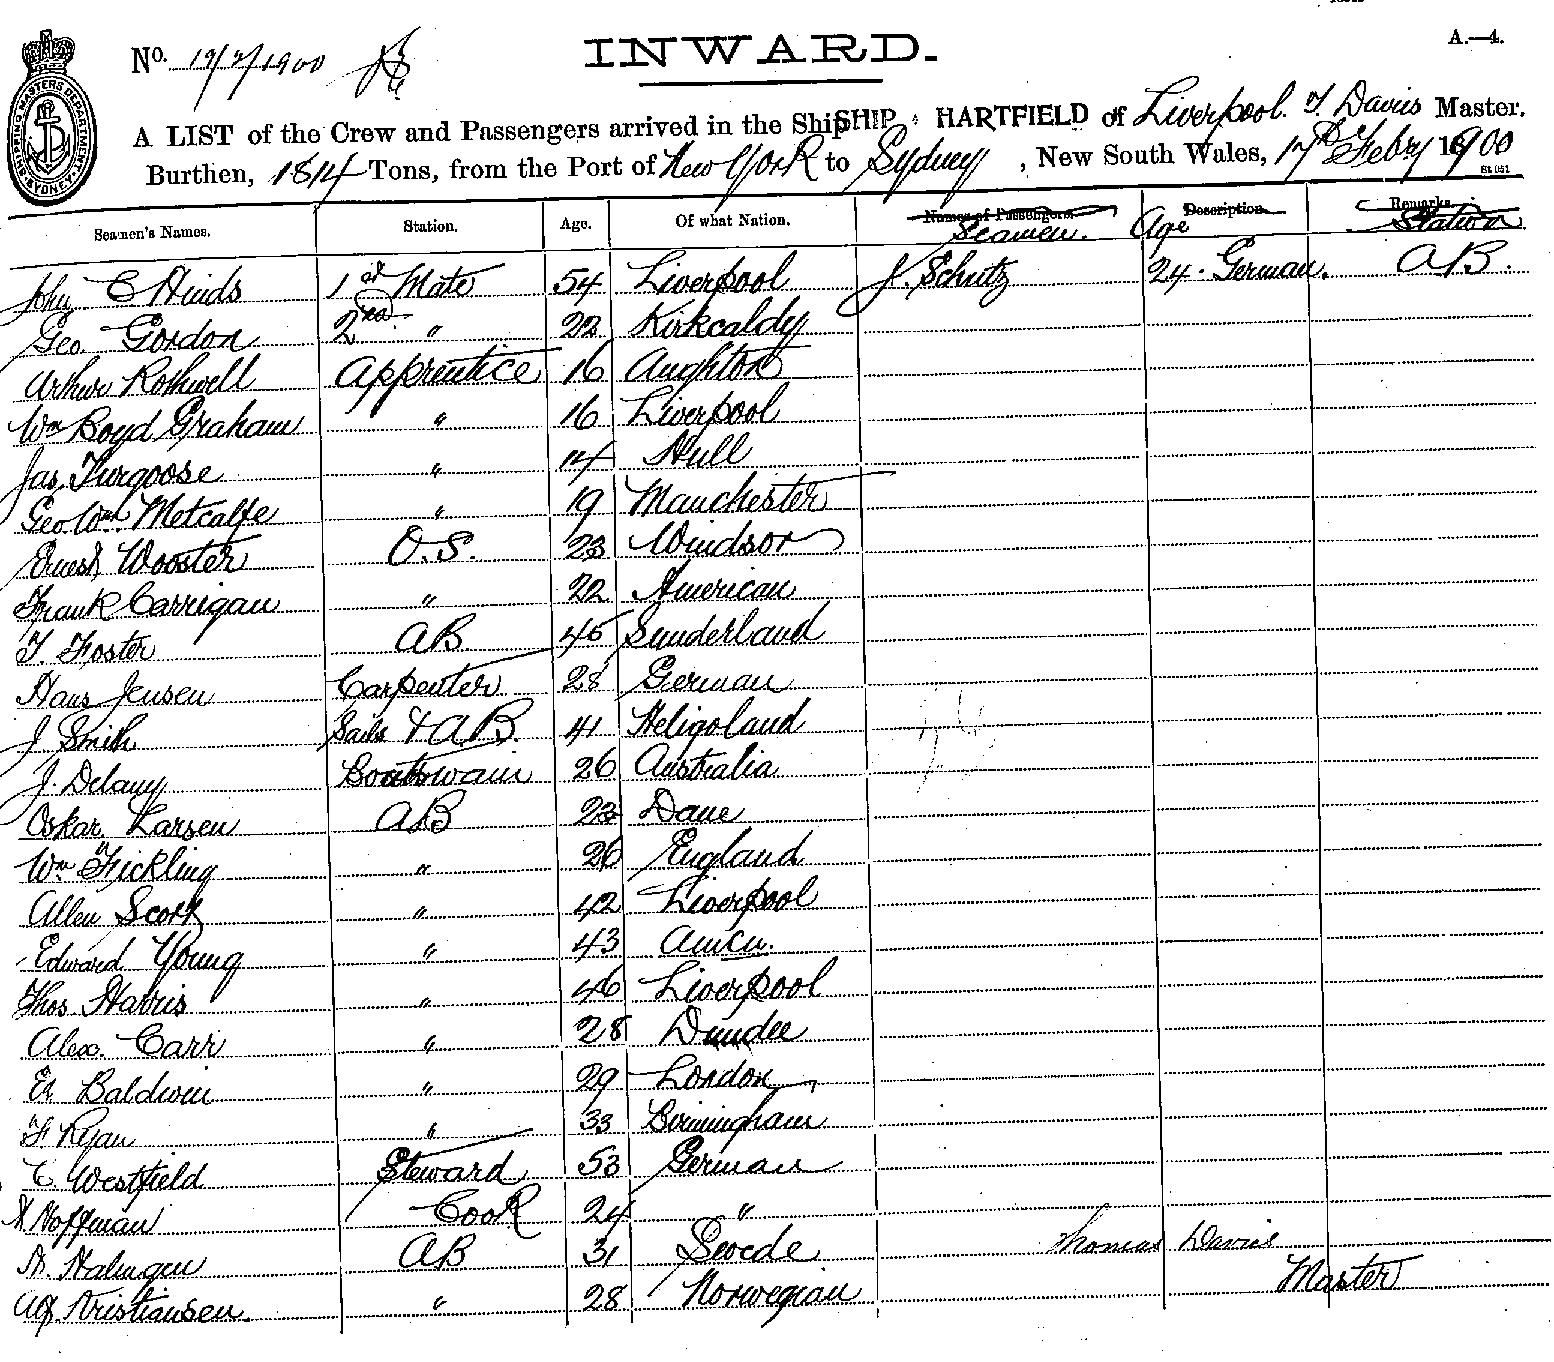 No. 19/2/1900
INWARD.
A.—4.
SHIPPING MASTERS DEPARTMENT SYDNEY
A LIST of the Crew and Passengers arrived in the Ship SHIP HARTFIELD of Liverpool. T. Davies Master.
Burthen, 1814 Tons, from the Port of New York to Sydney, New South Wales, 17th Febry 1900
St 051
Seamen's Names. Station. Age. Of what Nation. Names of Passengers. Description. Remarks.
Seamen. Age Station
John C Hinds 1st Mate 54 Liverpool J. Schutz 24 German. AB.
Geo. Gordon 2nd " 22 Kirkcaldy
Arthur Rothwell Apprentice 16 Aughton
Wm Boyd Graham " 16 Liverpool
Jas. Turgoose " 14 Hull
Geo. Wm. Metcalfe " 19 Manchester
Ernest Wooster O.S. 23 Windsor
Frank Carrigan " 22 American
T. Foster AB. 45 Sunderland
Hans Jensen Carpenter 28 German
J Smith Sails & AB. 41 Heligoland
J. Delany Boatswain 26 Australia
Oskar Larsen AB 23 Dane
Wm Fickling " 26 England
Allen Scott " 42 Liverpool
Edward Young " 43
Thos Harris " 46 Liverpool
Alex. Carr " 28 Dundee
Baldwin " 29 London
F. Ryan " 33 Birmingham
C. Westfield Steward 53 German
Hoffman Cook 24 "
AB 31 Swede Thomas Davies
Master
Kristiansen. " 28 Norwegian